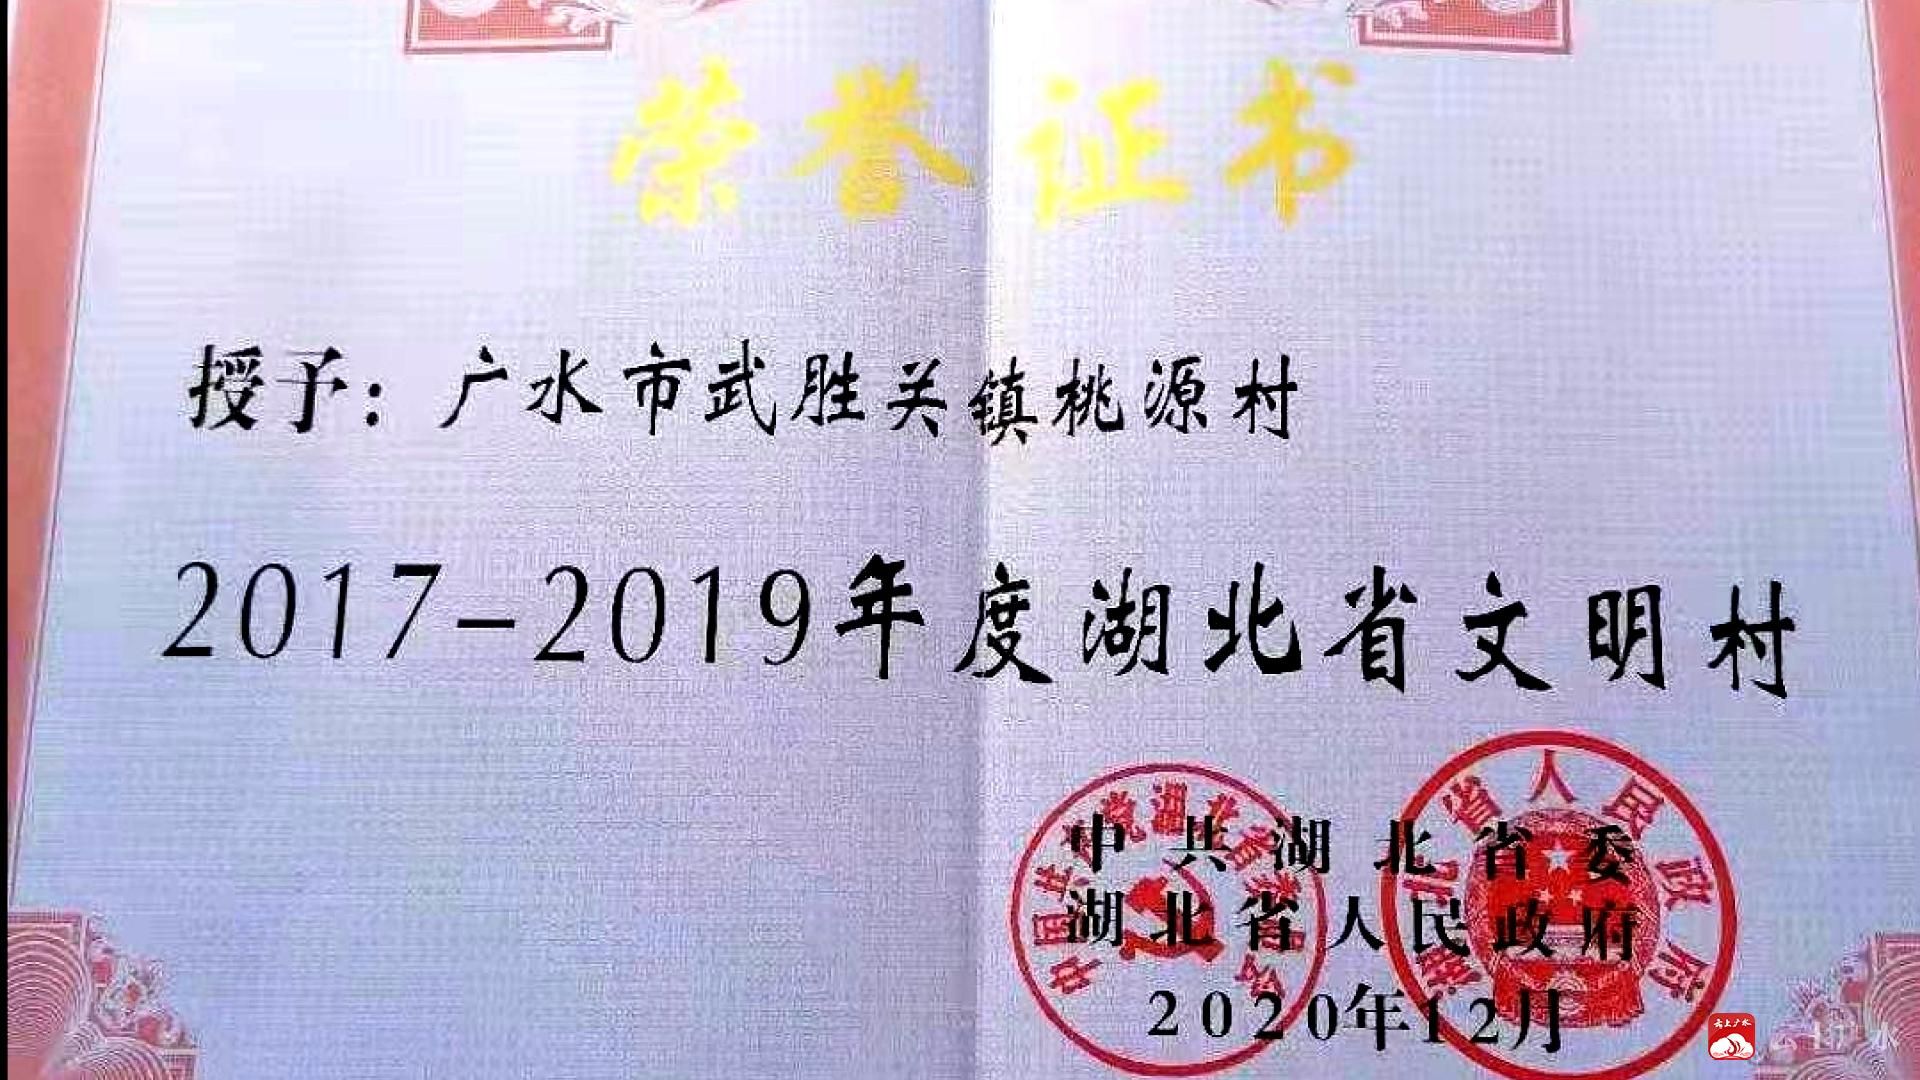 荣誉证书
授予：广水市武胜关镇桃源村
2017-2019年度湖北省文明村
中共湖北省委
湖北省人民政府
2020年12月
湖北省人民政府
云上广水